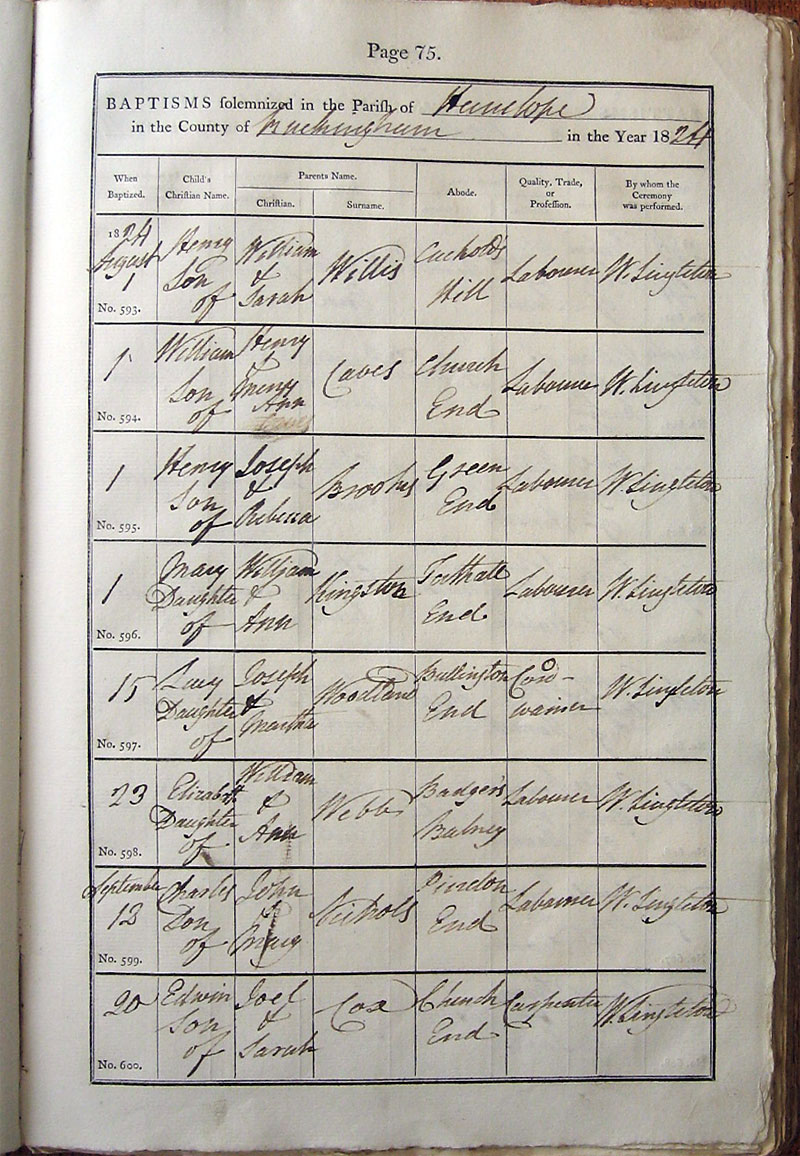 Page 75.
BAPTISMS solemnized in the Parish of Hanslope
in the County of Buckingham in the Year 1824
When Baptized. Child's Christian Name. Parents Name. Christian. Surname. Abode. Quality, Trade, or Profession. By whom the Ceremony was performed.
1824 August 1 Henry Son of William & Sarah Willis Cuckold's Hill Labourer W. Singleton
No. 593.
1 William Son of Henry & Mary Ann Caves Church End Labourer W. Singleton
No. 594.
1 Henry Son of Joseph & Rebecca Brookes Green End Labourer W. Singleton
No. 595.
1 Mary Daughter of William & Ann Kingston Tathall End Labourer W. Singleton
No. 596.
15 Lucy Daughter of Joseph & Martha Woodland Bullington End Cordwainer W. Singleton
No. 597.
23 Elizabeth Daughter of William & Ann Webb Badger's Labourer W. Singleton
No. 598.
September 12 Charles Son of John & Mary Nichols Pindon End Labourer W. Singleton
No. 599.
20 Edwin Son of Joel & Sarah Cox Church End Carpenter W. Singleton
No. 600.